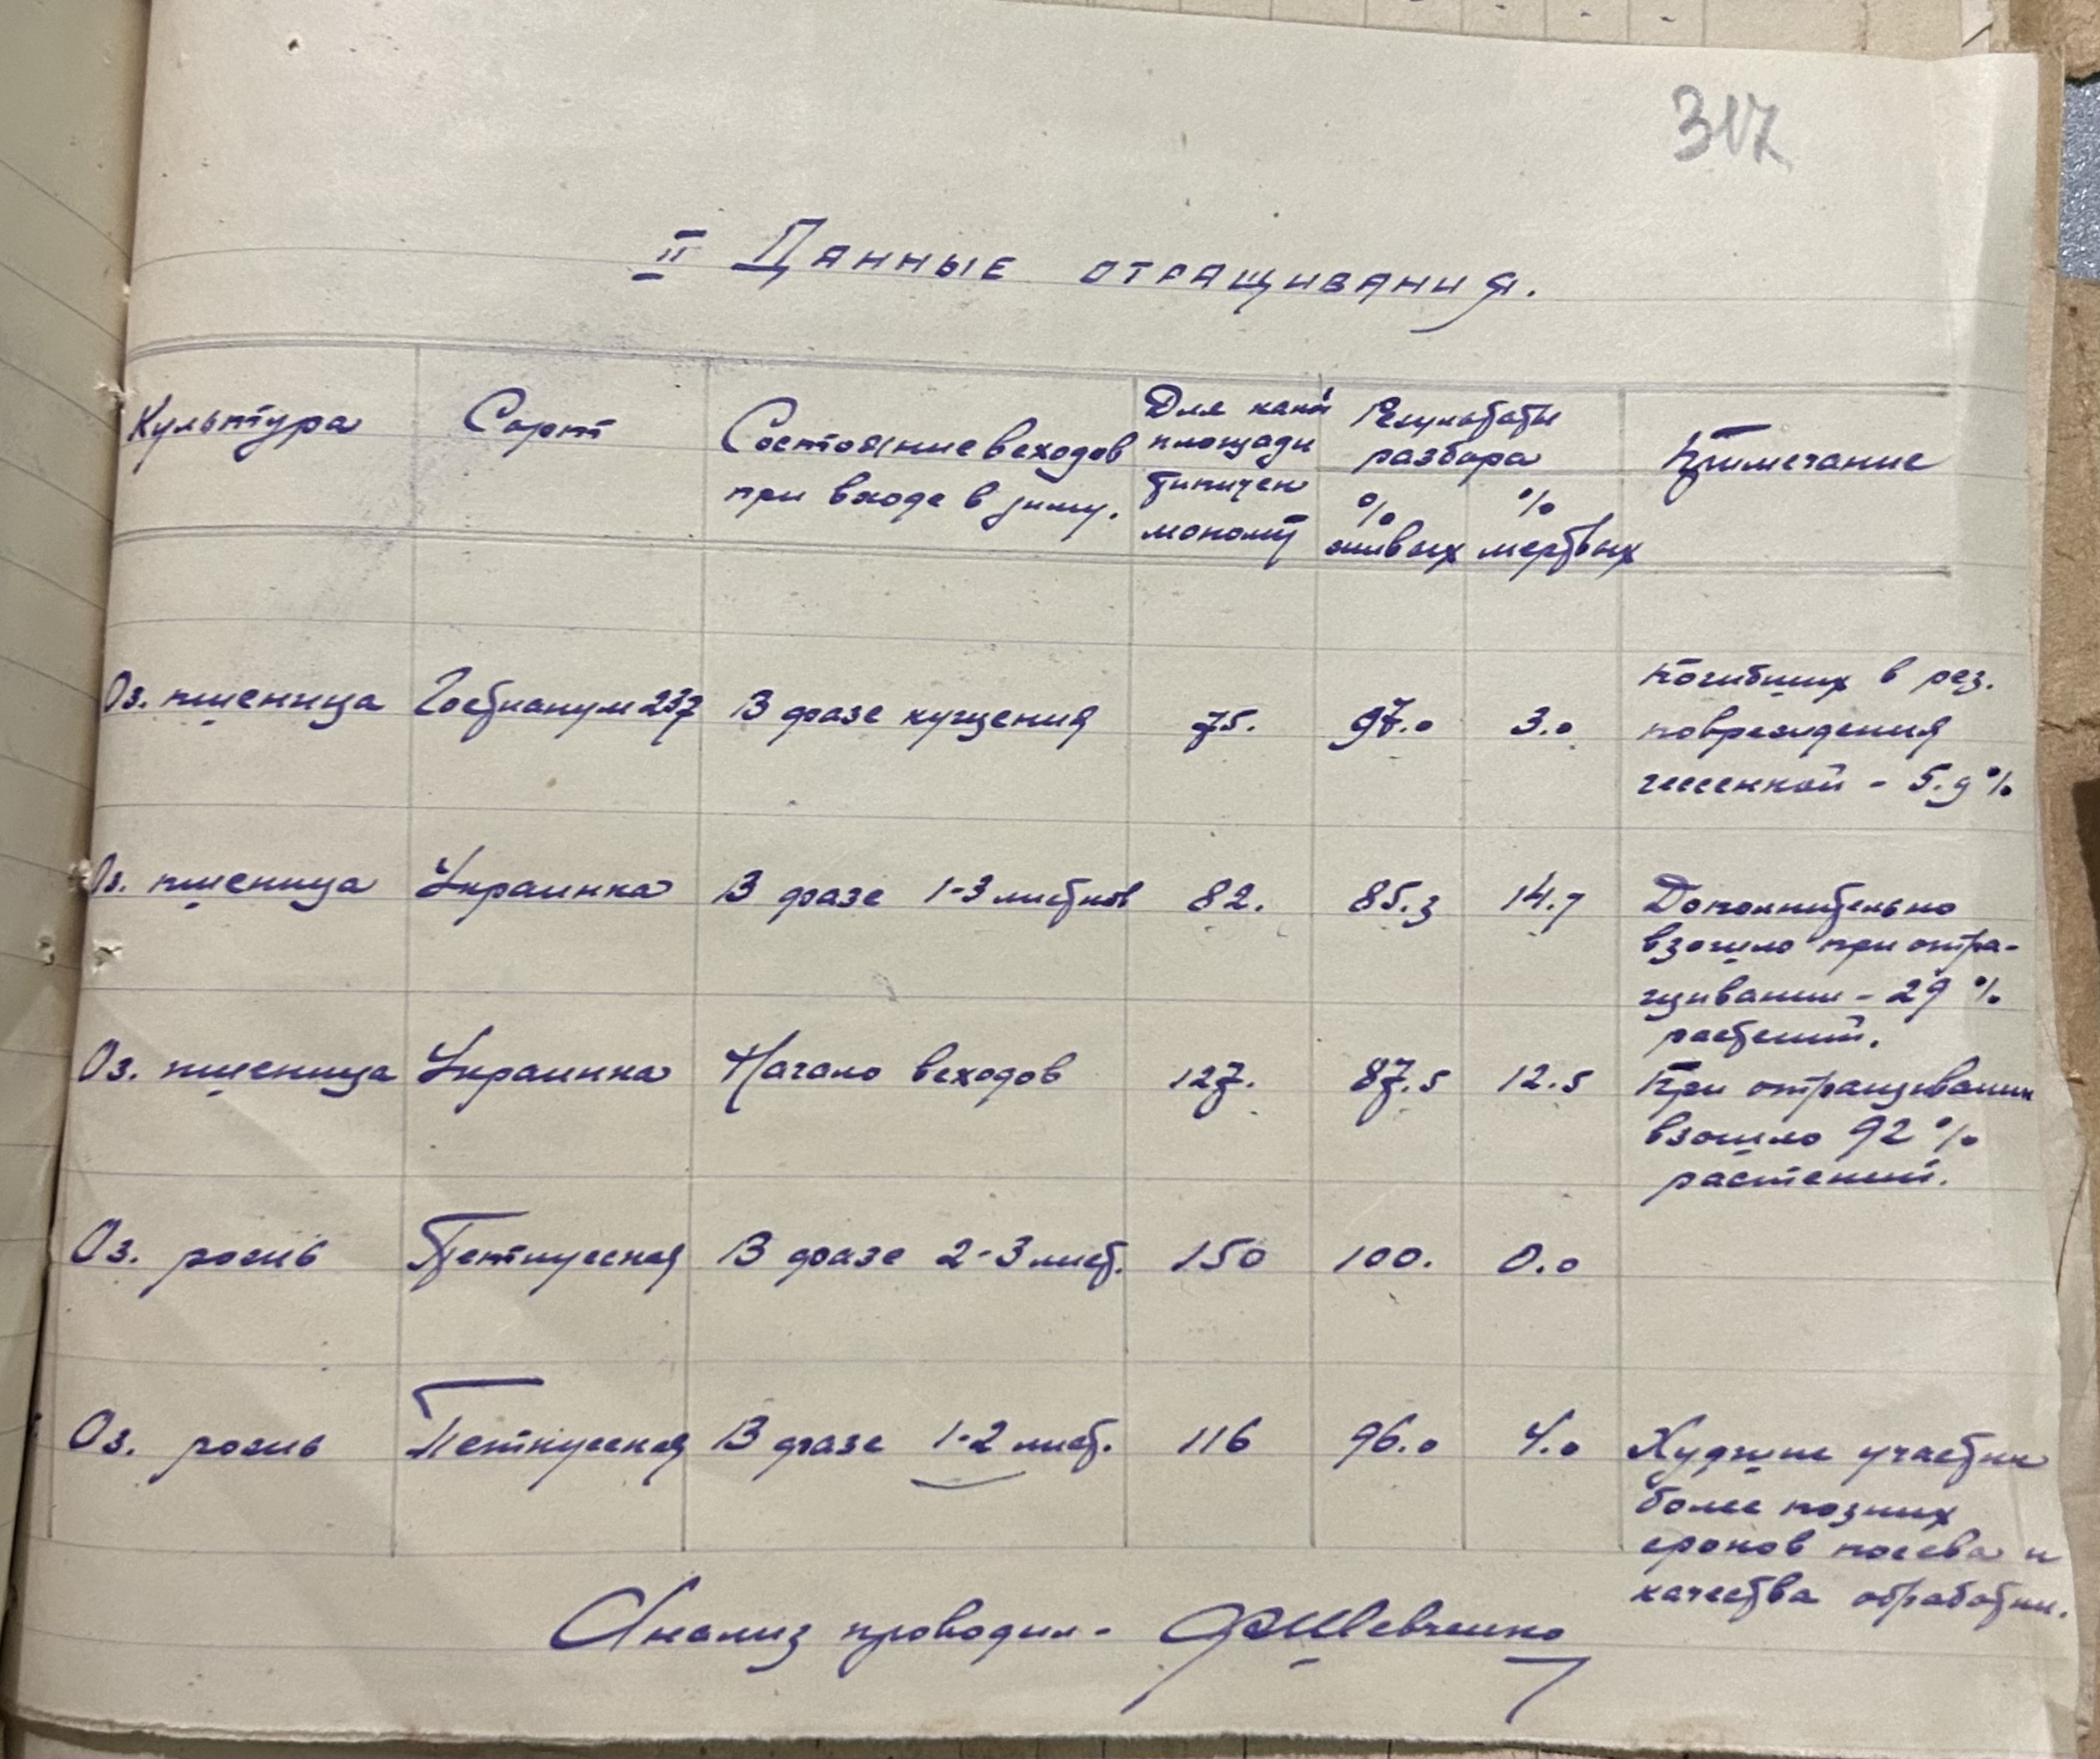 317
II Данные отращивания.
Культура Сорт Состояние всходов при входе в зиму. Для какой площади типичен монолит Результаты разбора % живых % мертвых Примечание
Оз. пшеница Гостианум 237 В фазе кущения 75. 97.0 3.0 погибших в рез.
повреждения
гессенкой - 5.9%
Оз. пшеница Украинка В фазе 1-3 листков 82. 85.3 14.7 Дополнительно
взошло при отра-
щивании - 29%
растений.
Оз. пшеница Украинка Начало всходов 127. 87.5 12.5 При отращивании
взошло 92%
растений.
Оз. рожь Петкусская В фазе 2-3 лист. 150 100. 0.0
Оз. рожь Петкусская В фазе 1-2 лист. 116 96.0 4.0 Худшие участки
более позних
сроков посева и
качества обработки.
Анализ проводил - Шевченко